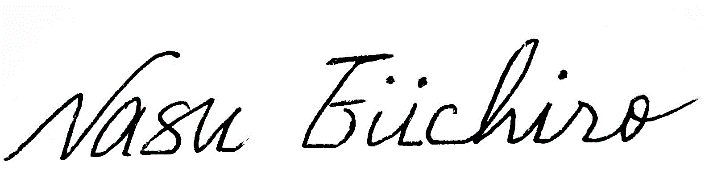 Nasu Eiichiro